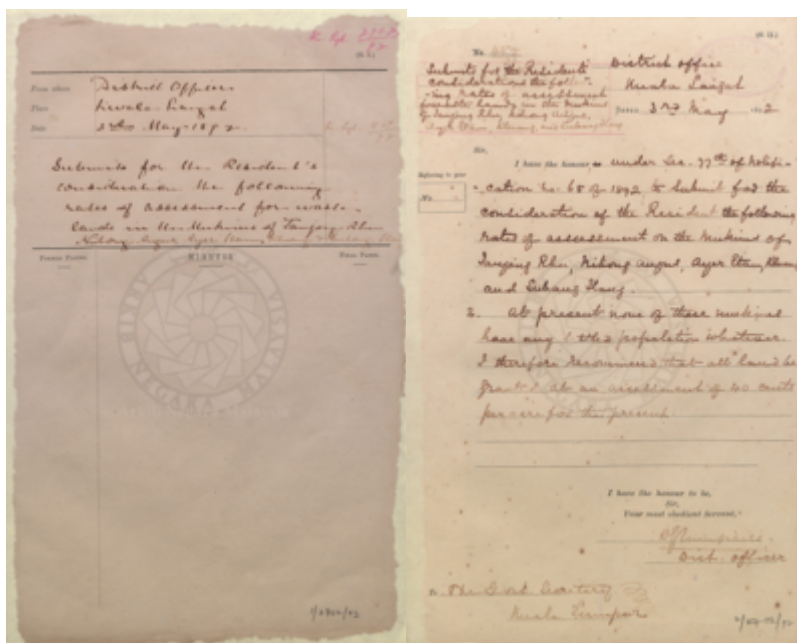 (G. 15.)
From whom District Officer
Place Kuala Langat
Date 3rd May 1892
Submits for the Resident's
consideration the following
rates of assessment for waste
lands in the Mukims of Tanjong Rhu
Former Papers.
MINUTE
Final Papers.
(G. 15.)
No.
Submits for the Residents
considerations the follow-
-ing rates of assessment
District office
Kuala Langat
Dated 3rd May 1892
Sir,
Referring to your
No.
I have the honour under Sec. 77th of Notifi-
-cation No. 68 of 1892 to submit for the
consideration of the Resident the following
rates of assessment on the mukims of
Tanjong Rhu, Ayer Etam,
and
2. At present none of these mukims
have any population whatever.
I therefore recommend that all land be
granted at an assessment of 40 cents
per acre for the present.
I have the honour to be,
Sir,
Your most obedient Servant,
Dist. officer
The Govt Secretary
Kuala Lumpor